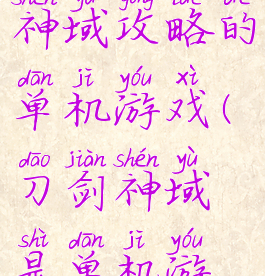 shén yù gōng lüè de
神域攻略的
dān jī yóu xì
单机游戏(
dāo jiàn shén yù
刀剑神域
shì dān jī yóu
是单机游